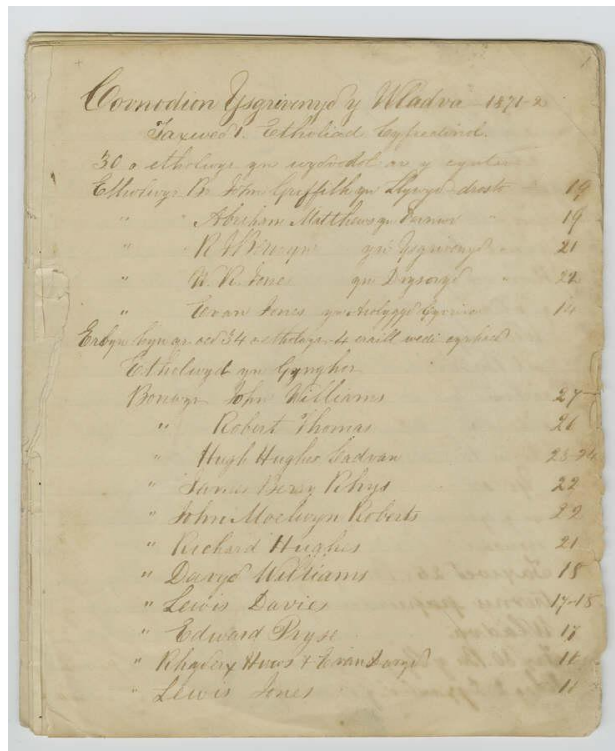 Covnodion Ysgrivenyd y Wladva 1871-2
Taxwed 1. Etholiad Cyfredinol.
30 o etholwyr yn wydvodol ar y cyntav
Etholwyr Br John Griffith yn Llywyd drosto 19
" " Abraham Matthews yn Varnwr " 19
" R J Berwyn yn Ysgrivenyd 21
" W. R. Jones yn Drysoryd " 22
" Evan Jones yn 14
Erbyn hyn ar oed 34 o etholwyr 4 eraill wedi cyrhaed
Etholwyd yn Gynghor
Bonwyr John Williams 27
" Robert Thomas 26
" Hugh Hughes Cadvan 25-24
" James Berry Rhys 22
" John Moelwyn Roberts 22
" Richard Hughes 21
" Davyd Williams 18
" Lewis Davies 17-18
" Edward Pryse 17
" Rhydderx Huws + Evan Davyd 16
" Lewis Jones